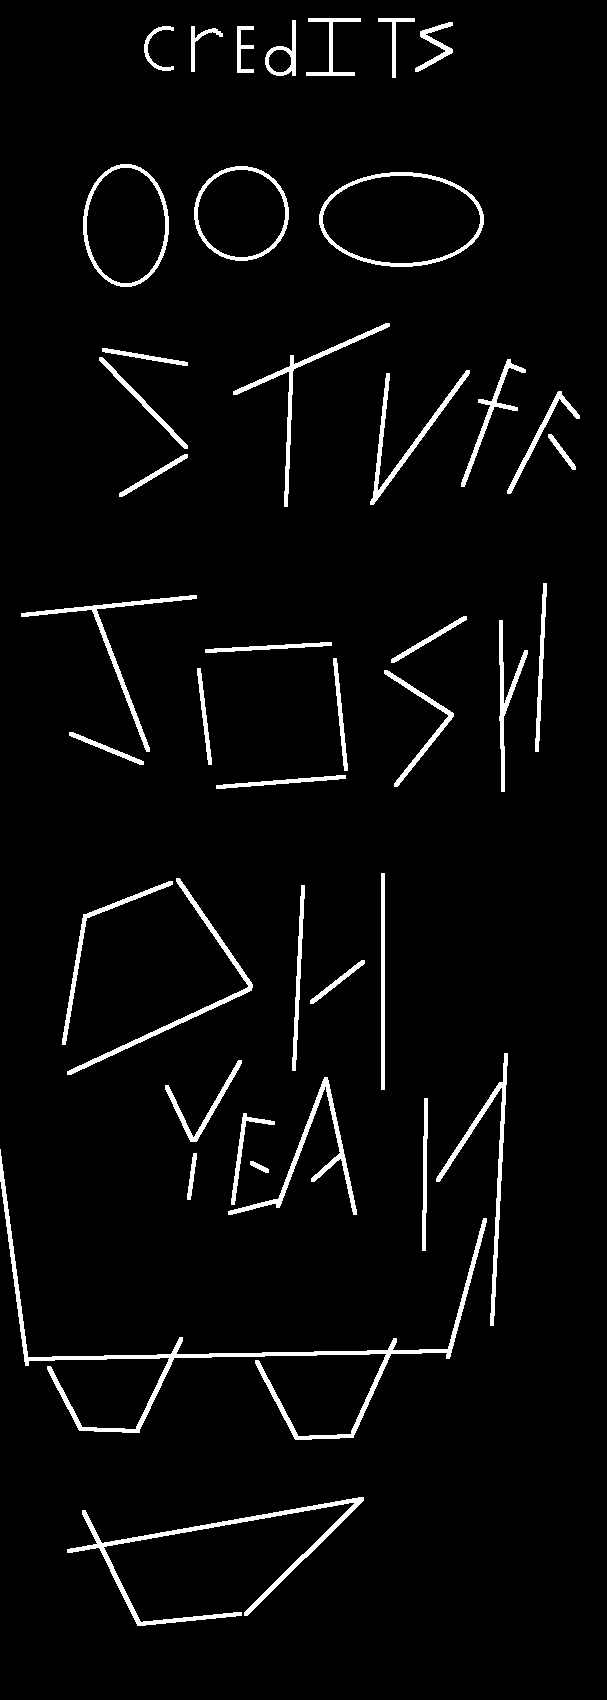 crEdITS
STUFF
JOSH
OH
YEAH